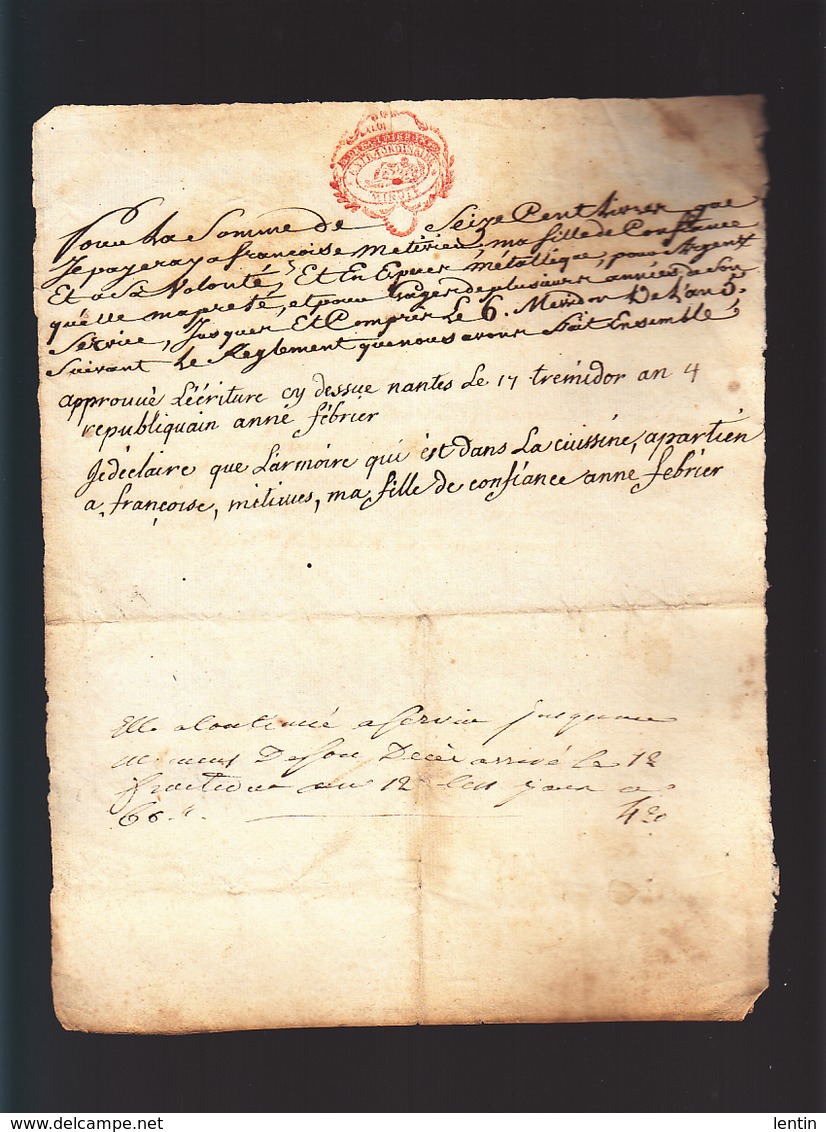 Pour La Somme de Seize Cent Livres que
Je payeray a françoise metivier, ma fille de Confiance
Et a Sa Volonté, Et En Espece métallique, pour Argent
quelle ma preté, et pour Gages de plusieurs années, a Son
Service, Jusques Et Compris Le 6. Messidor De L'an 3.
Suivant Le Reglement que nous avons fait Ensemble,
approuvé L'écriture cy dessue nantes Le 17 tremidor an 4
republiquain anné fébrier
Je déclaire que L'armoire qui ést dans La cuissine, apartién
a, françoise, metivies, ma fille de confiance anne febrier
Elle a Continué a Servir Jusqu
De Son Décès arrivé le 12
fructidor an 12
60.
delcampe.net
lentin